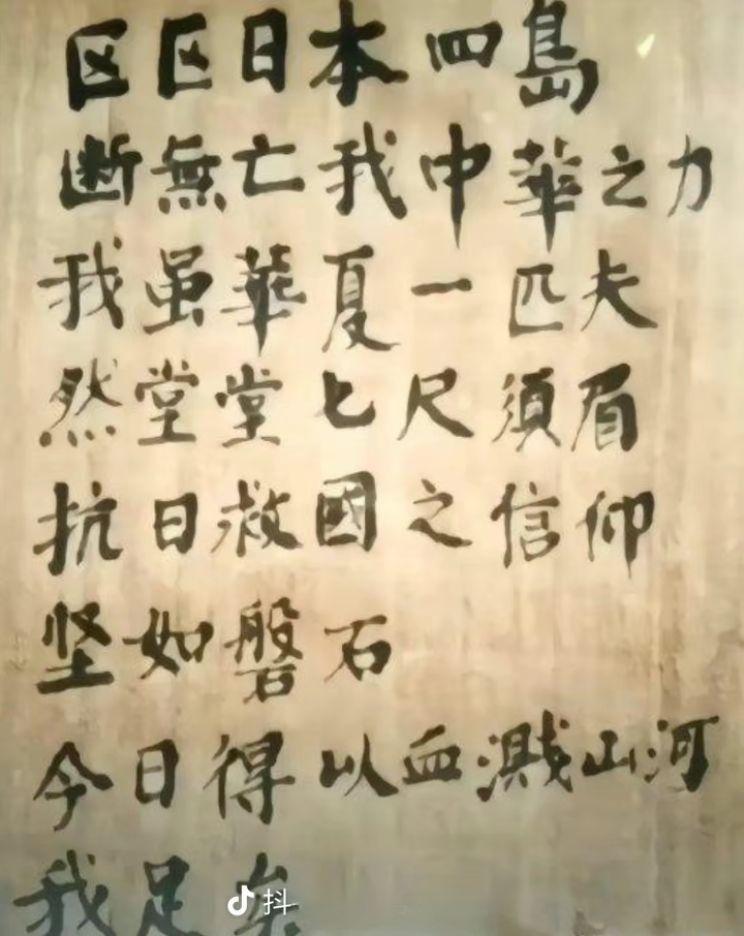 区区日本四島
断無亡我中華之力
我虽華夏一匹夫
然堂堂七尺須眉
抗日救國之信仰
坚如磐石
今日得以血濺山河
我足矣
抖